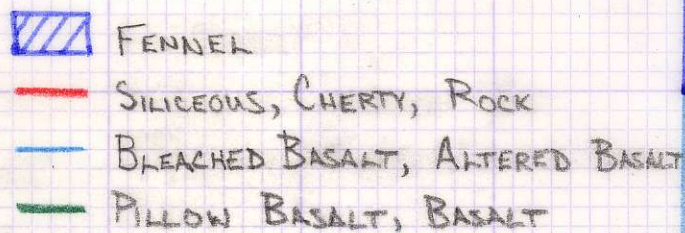 FENNEL
SILICEOUS, CHERTY, ROCK
BLEACHED BASALT, ALTERED BASALT
PILLOW BASALT, BASALT